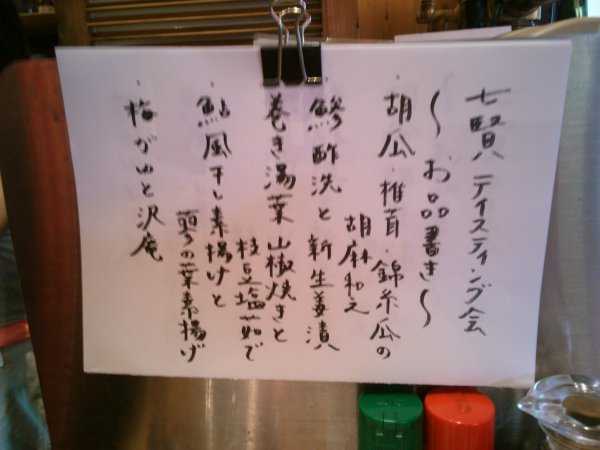 七賢 テイスティング会
〜お品書き〜
・胡瓜・椎茸・錦糸瓜の
胡麻和え
・鯵酢洗と新生姜漬
・巻き湯葉山椒焼きと
枝豆塩茹で
・鮎風干し素揚げと
蓼の葉素揚げ
・梅がゆと沢庵